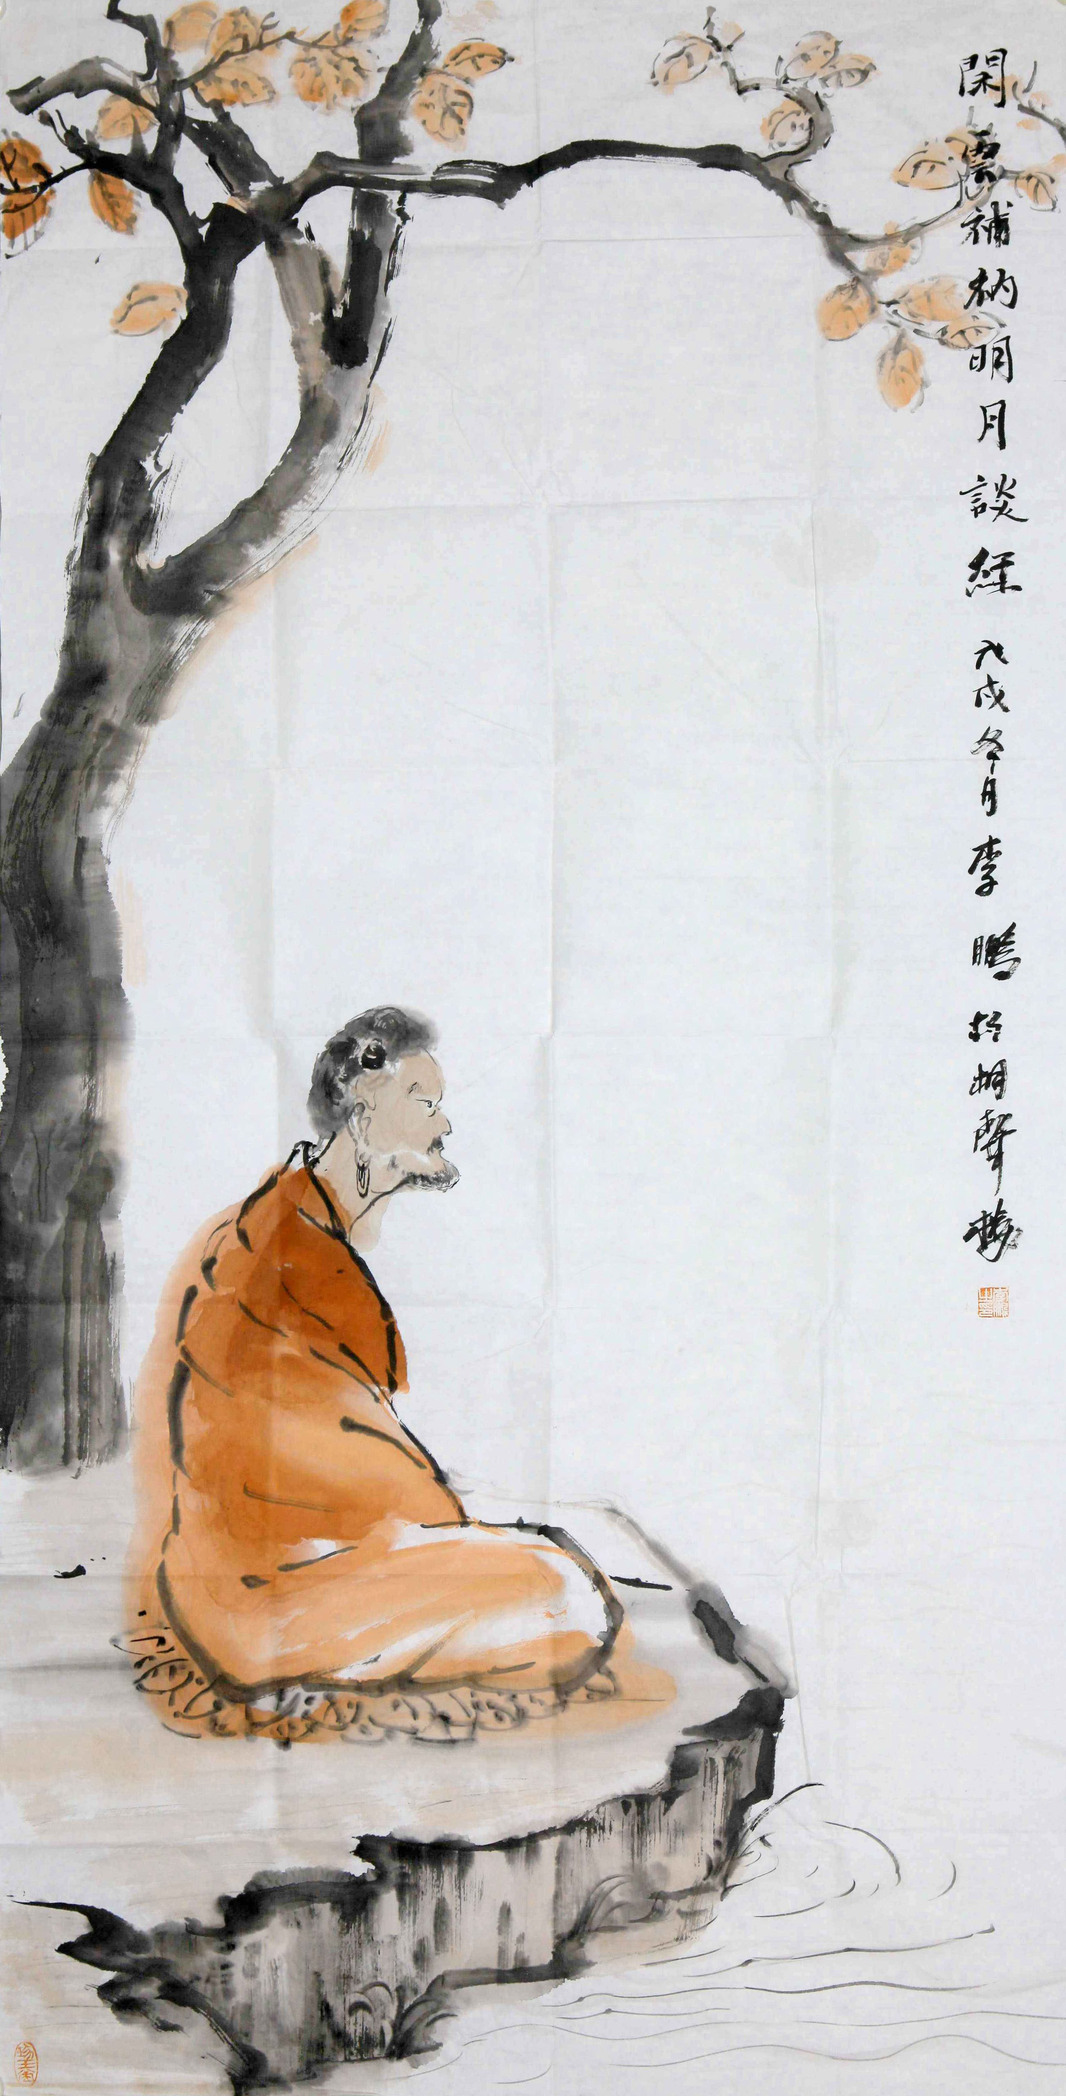 閑雲補衲明月談經 戊戌冬月李鵬於桐聲樓